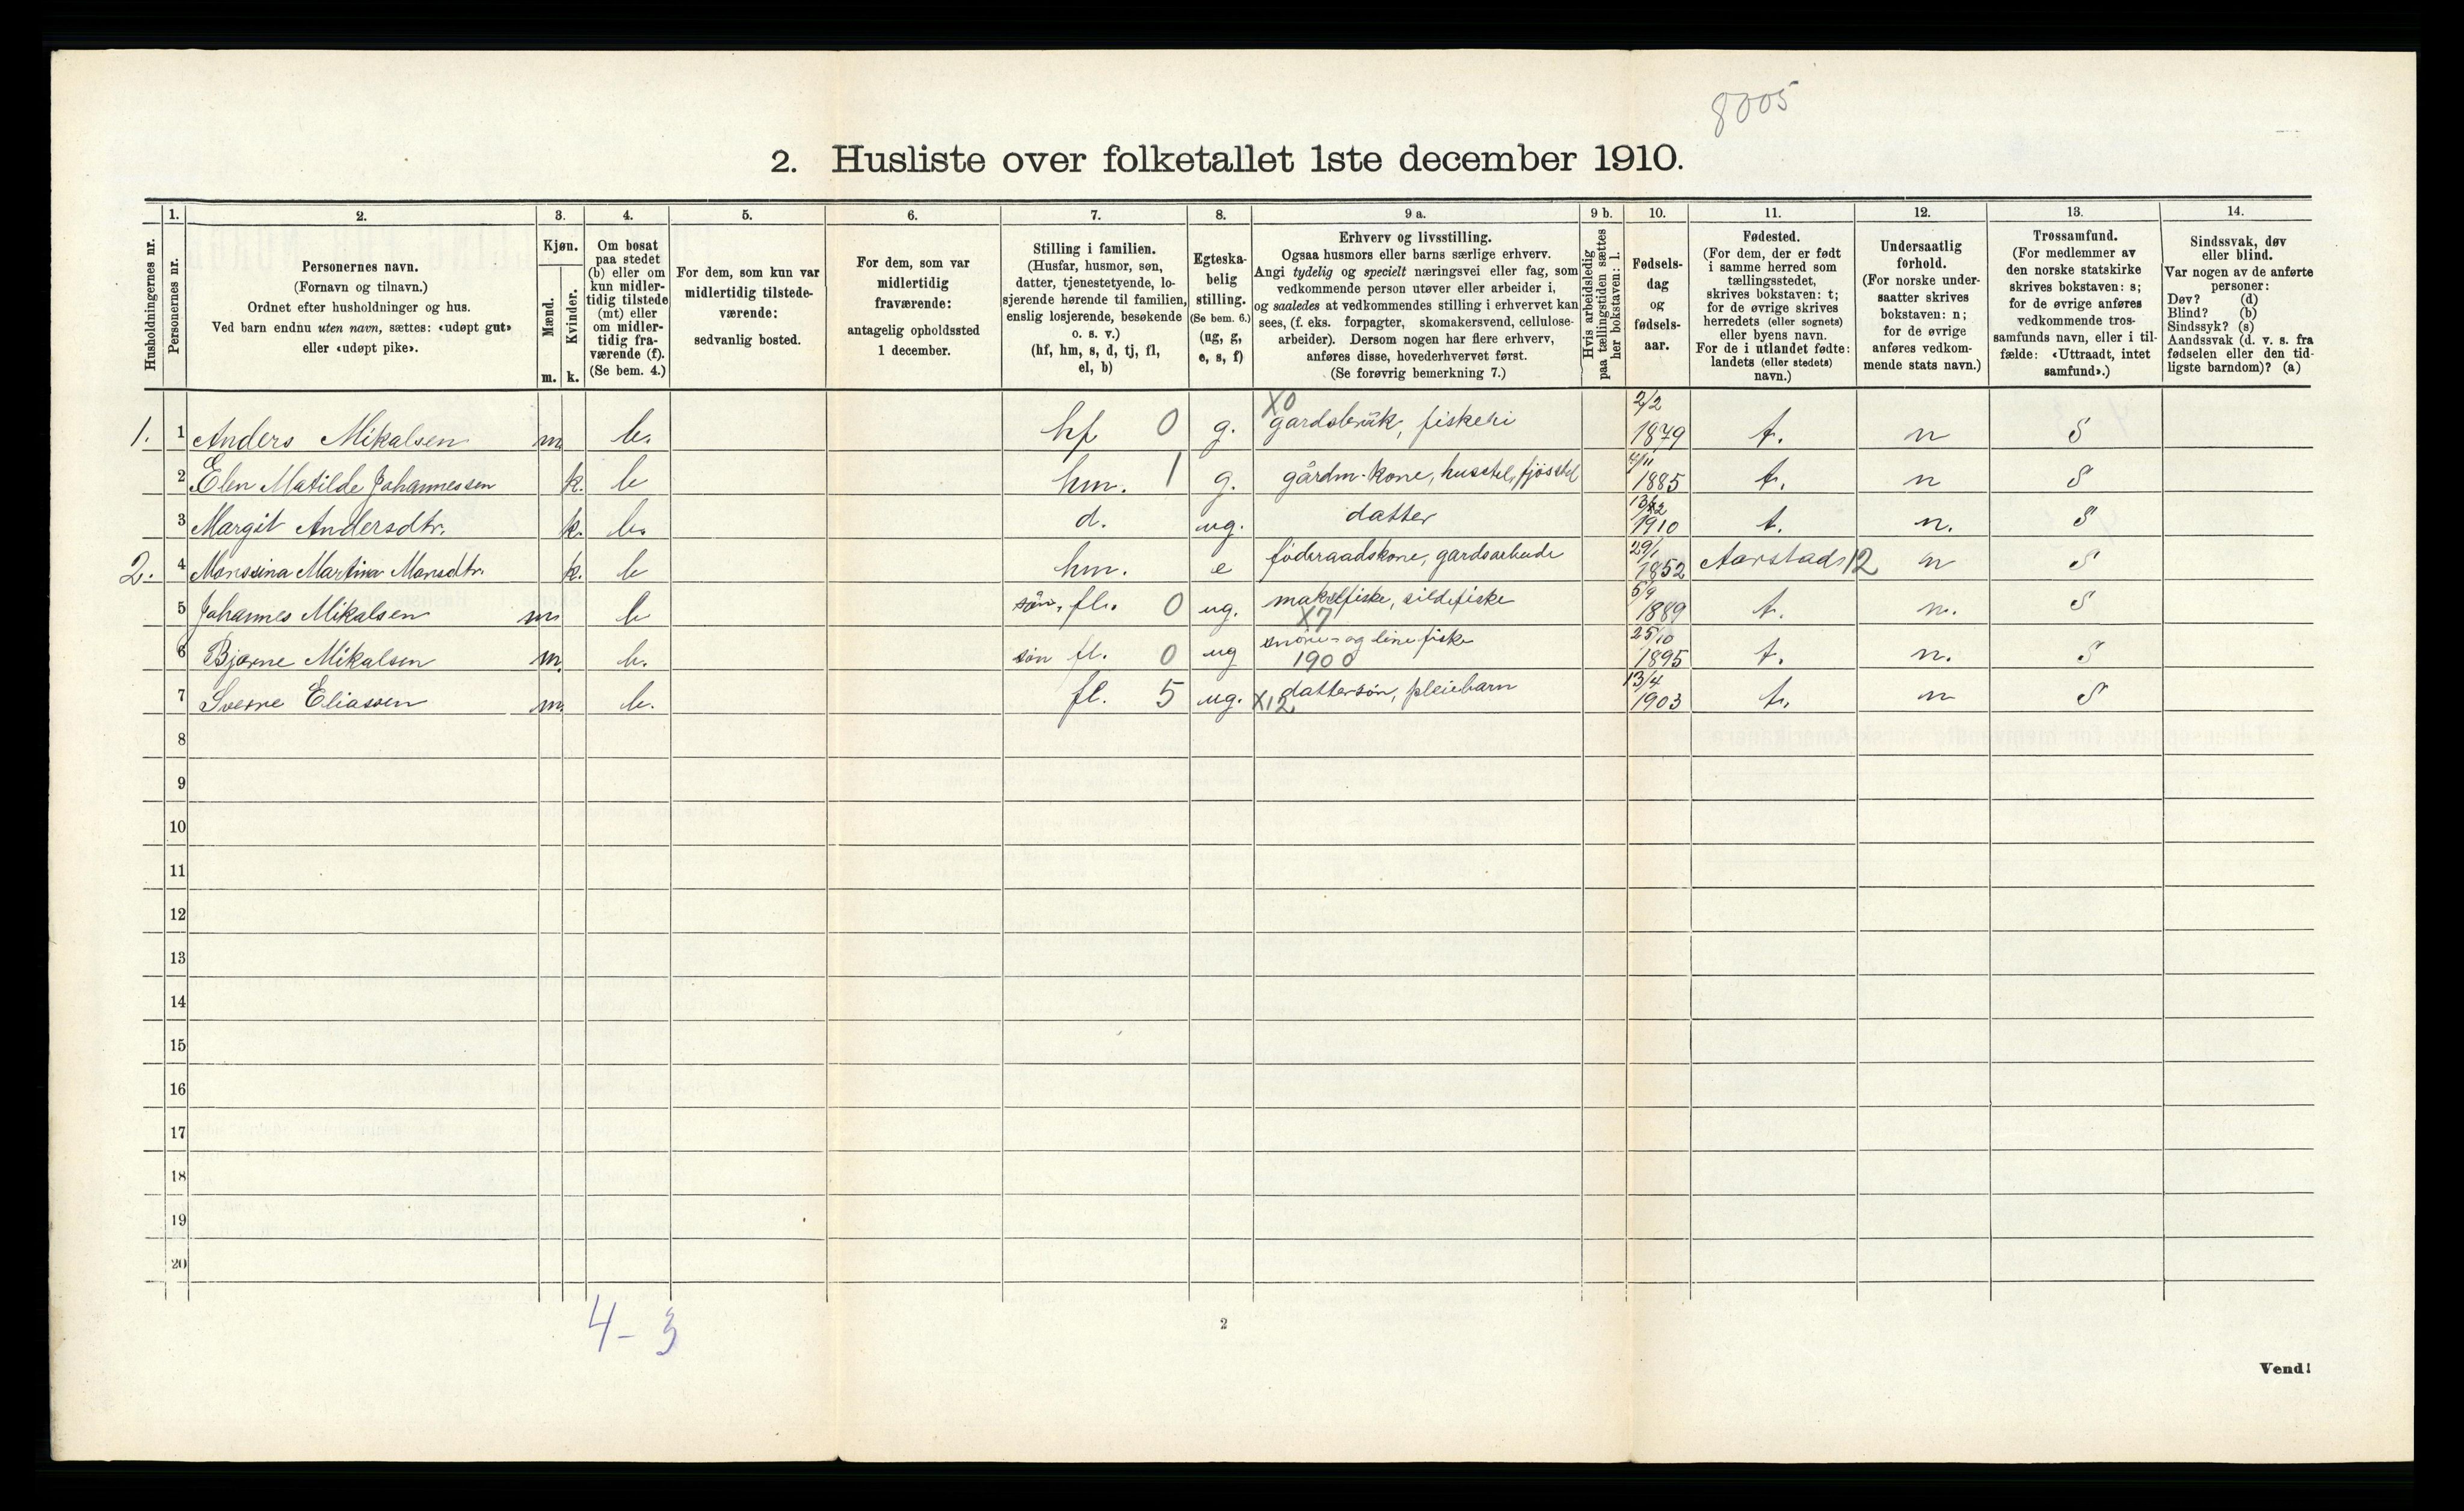 8005
2. Husliste over folketallet 1ste december 1910.
Husholdningernes nr.
1. Personernes nr.
2. Personernes navn.
(Fornavn og tilnavn.)
Ordnet efter husholdninger og hus.
Ved barn endnu uten navn, sættes: «udøpt gut»
eller «udøpt pike».
3. Kjøn.
Mænd. m.
Kvinder. k.
4. Om bosat
paa stedet
(b) eller om
kun midler-
tidig tilstede
(mt) eller
om midler-
tidig fra-
værende (f).
(Se bem. 4.)
5. For dem, som kun var
midlertidig tilstede-
værende:
sedvanlig bosted.
6. For dem, som var
midlertidig
fraværende:
antagelig opholdssted
1 december.
7. Stilling i familien.
(Husfar, husmor, søn,
datter, tjenestetyende, lo-
sjerende hørende til familien,
enslig losjerende, besøkende
o. s. v.)
(hf, hm, s, d, tj, fl,
el, b)
8. Egteska-
belig
stilling.
(Se bem. 6.)
(ug, g,
e, s, f)
9 a. Erhverv og livsstilling.
Ogsaa husmors eller barns særlige erhverv.
Angi tydelig og specielt næringsvei eller fag, som
vedkommende person utøver eller arbeider i,
og saaledes at vedkommendes stilling i erhvervet kan
sees, (f. eks. forpagter, skomakersvend, cellulose-
arbeider). Dersom nogen har flere erhverv,
anføres disse, hovederhvervet først.
(Se forøvrig bemerkning 7.)
9 b. Hvis arbeidsledig
paa tællingstiden sættes
her bokstaven: l.
10. Fødsels-
dag
og
fødsels-
aar.
11. Fødested.
(For dem, der er født
i samme herred som
tællingsstedet,
skrives bokstaven: t;
for de øvrige skrives
herredets (eller sognets)
eller byens navn.
For de i utlandet fødte:
landets (eller stedets)
navn.)
12. Undersaatlig
forhold.
(For norske under-
saatter skrives
bokstaven: n;
for de øvrige
anføres vedkom-
mende stats navn.)
13. Trossamfund.
(For medlemmer av
den norske statskirke
skrives bokstaven: s;
for de øvrige anføres
vedkommende tros-
samfunds navn, eller i til-
fælde: «Uttraadt, intet
samfund».)
14. Sindssvak, døv
eller blind.
Var nogen av de anførte
personer:
Døv? (d)
Blind? (b)
Sindssyk? (s)
Aandssvak (d. v. s. fra
fødselen eller den tid-
ligste barndom)? (a)
1. 1 Anders Mikalsen m. b. hf 0 g. X0 gardsbruk, fiskeri 2/2 1879 t. n S
2 Elen Matilde Johannessen k. b hm. 1 g. gårdm. kone, husstel, fjøsstel 1885 t. n S
3 Margit Andersdtr. k. b. d. ug. datter 1910 t. n. S
2. 4 Monssina Martina Monsdtr. k. b hm. e føderaadskone, gardsarbeide 29/1 1852 Aarstad 12 n S
5 Johannes Mikalsen m. b søn, fl. 0 ug. makrelfiske, sildefiske X7 5/9 1889 t. n. S
6 Bjarne Mikalsen m. b. søn fl. 0 ug snøre- og linefiske 1900 25/10 1895 t. n. S
7 Sverre Eliassen m. b. fl. 5 ug. X12 dattersøn, pleiebarn 13/4 1903 t. n S
8
9
10
11
12
13
14
15
16
17
18
19
20
4 - 3
2
Vend!